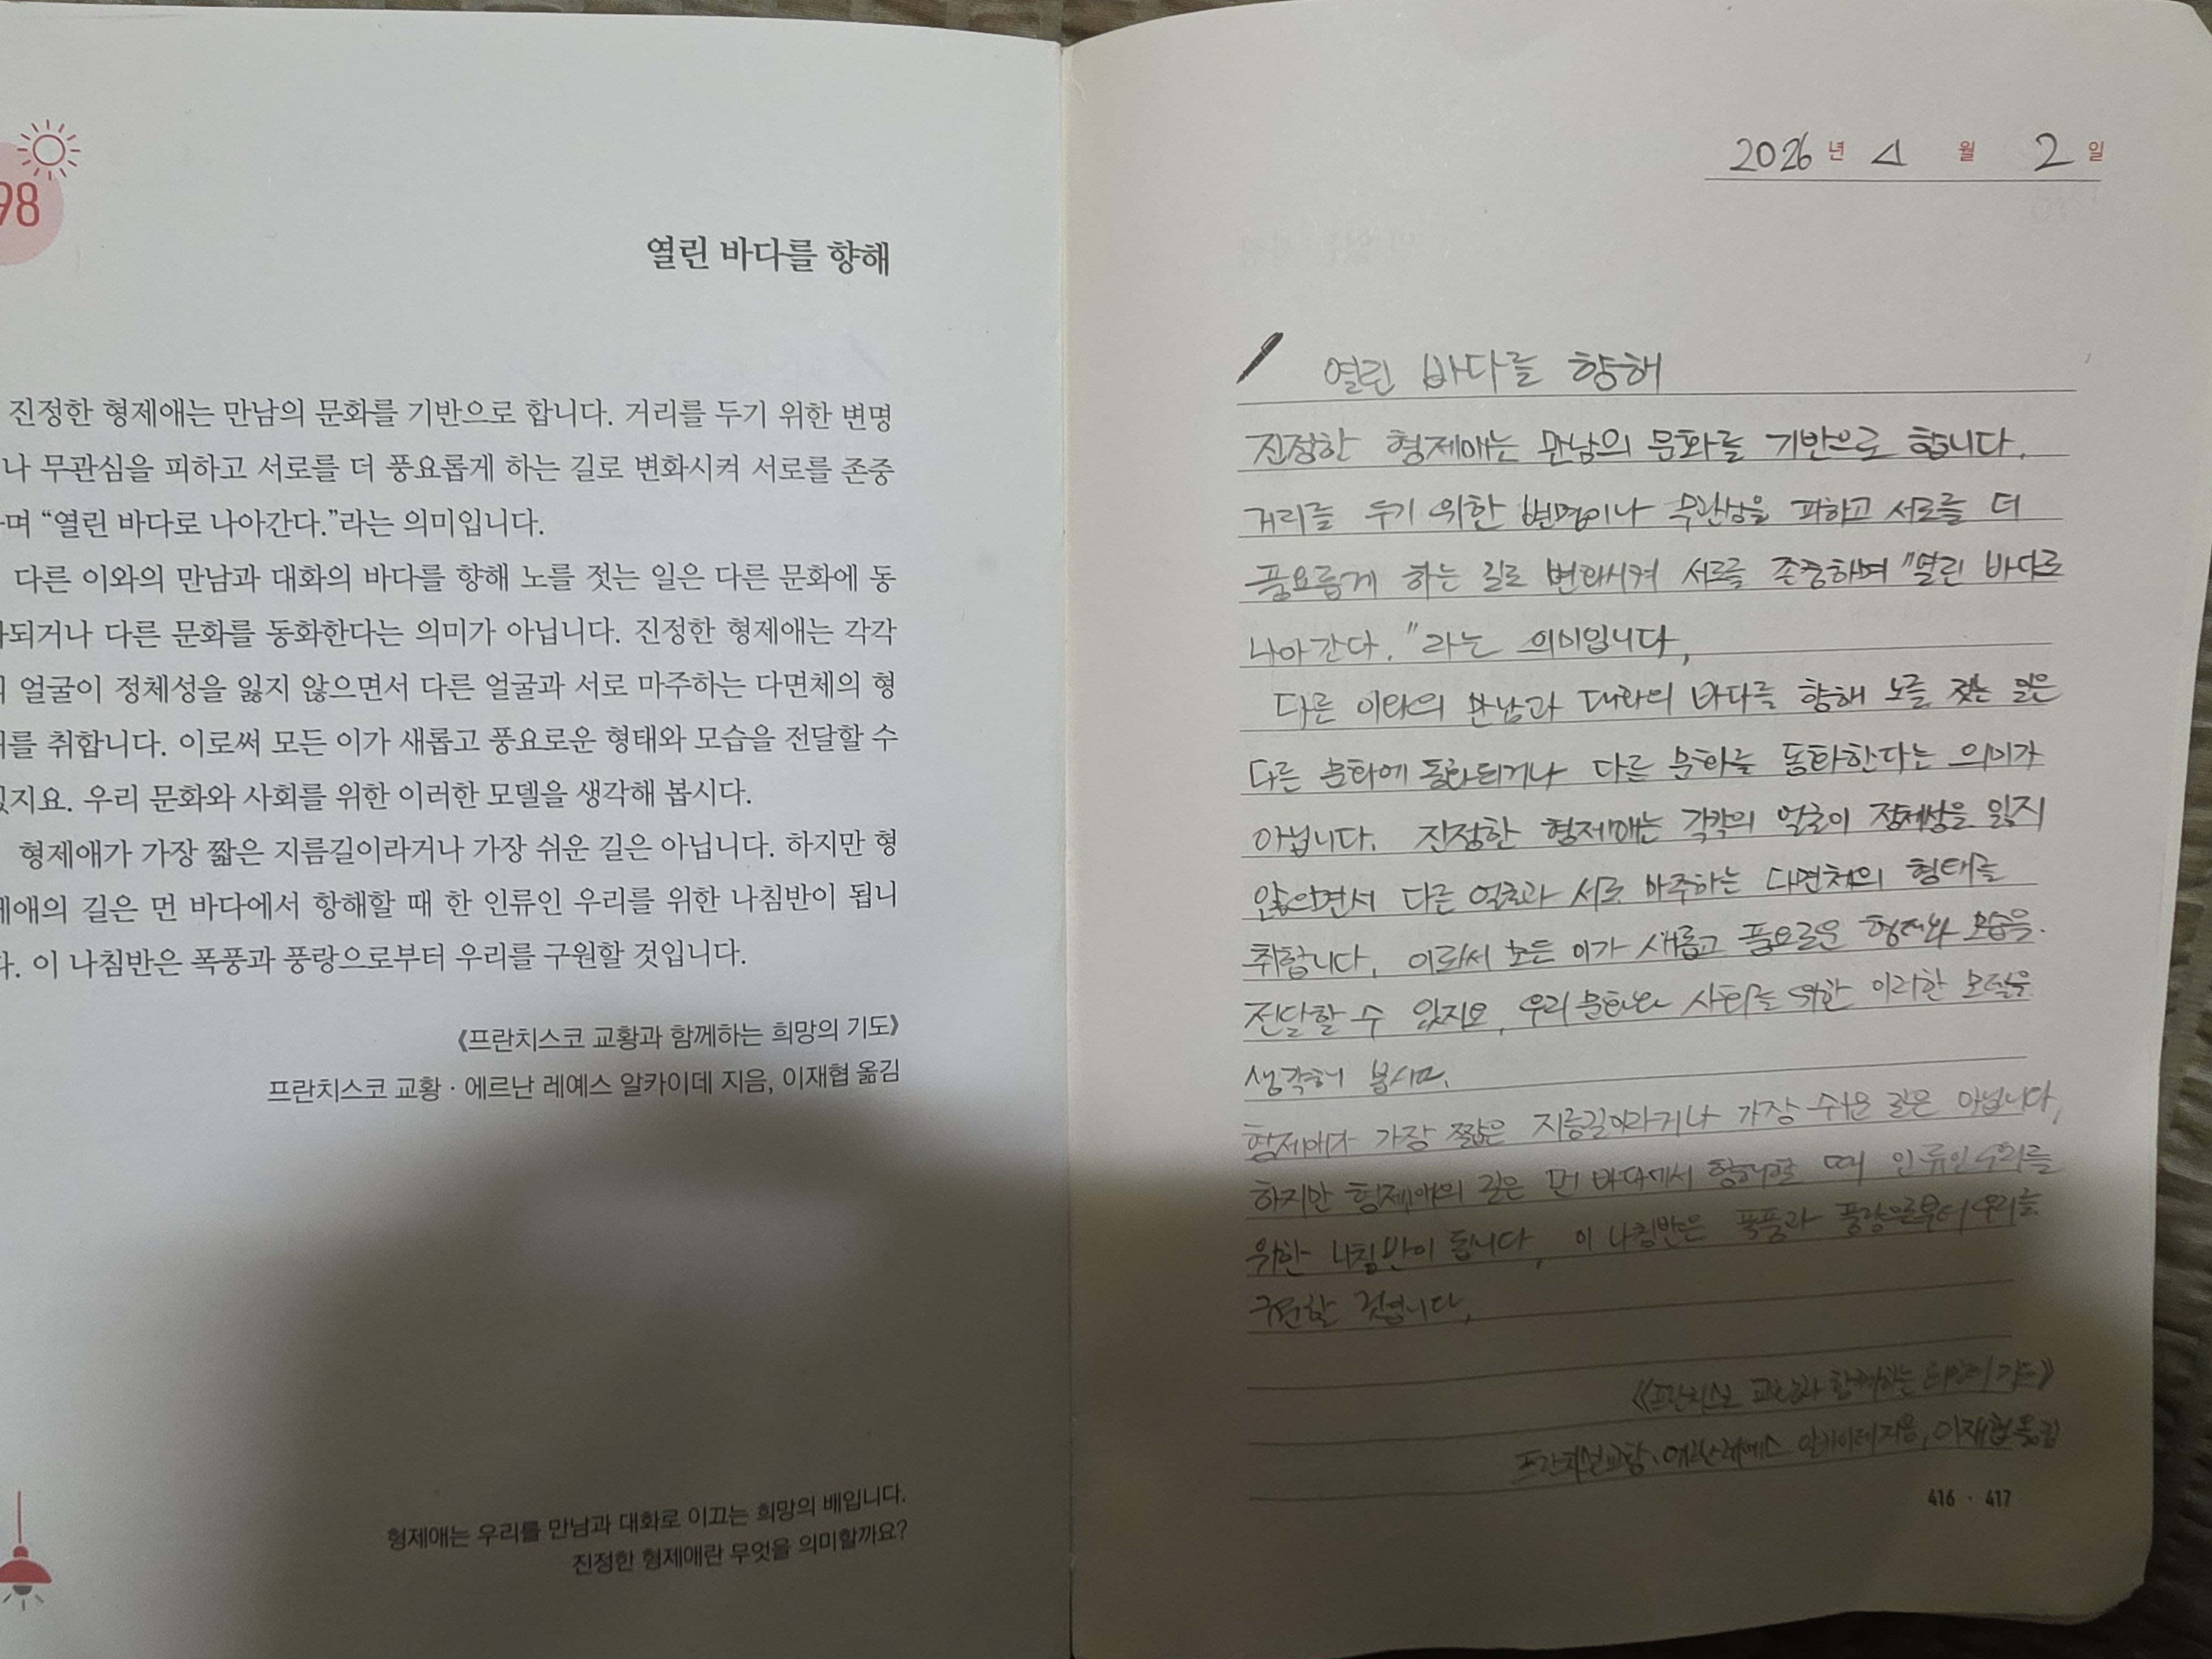 98
열린 바다를 향해
진정한 형제애는 만남의 문화를 기반으로 합니다. 거리를 두기 위한 변명
나 무관심을 피하고 서로를 더 풍요롭게 하는 길로 변화시켜 서로를 존중
며 “열린 바다로 나아간다.”라는 의미입니다.
다른 이와의 만남과 대화의 바다를 향해 노를 젓는 일은 다른 문화에 동
되거나 다른 문화를 동화한다는 의미가 아닙니다. 진정한 형제애는 각각
얼굴이 정체성을 잃지 않으면서 다른 얼굴과 서로 마주하는 다면체의 형
를 취합니다. 이로써 모든 이가 새롭고 풍요로운 형태와 모습을 전달할 수
있지요. 우리 문화와 사회를 위한 이러한 모델을 생각해 봅시다.
형제애가 가장 짧은 지름길이라거나 가장 쉬운 길은 아닙니다. 하지만 형
제애의 길은 먼 바다에서 항해할 때 한 인류인 우리를 위한 나침반이 됩니
다. 이 나침반은 폭풍과 풍랑으로부터 우리를 구원할 것입니다.
《프란치스코 교황과 함께하는 희망의 기도》
프란치스코 교황 · 에르난 레예스 알카이데 지음, 이재협 옮김
형제애는 우리를 만남과 대화로 이끄는 희망의 배입니다.
진정한 형제애란 무엇을 의미할까요?
2026년 4월 2일
열린 바다를 향해
진정한 형제애는 만남의 문화를 기반으로 합니다.
거리를 두기 위한 변명이나 무관심을 피하고 서로를 더
풍요롭게 하는 길로 변화시켜 서로를 존중하며 "열린 바다로
나아간다."라는 의미입니다.
다른 이와의 만남과 대화의 바다를 향해 노를 젓는 일은
다른 문화에 동화되거나 다른 문화를 동화한다는 의미가
아닙니다. 진정한 형제애는 각각의 얼굴이 정체성을 잃지
않으면서 다른 얼굴과 서로 마주하는 다면체의 형태를
취합니다. 이로써 모든 이가 새롭고 풍요로운 형태와 모습을
전달할 수 있지요. 우리 문화와 사회를 위한 이러한 모델을
생각해 봅시다.
형제애가 가장 짧은 지름길이라거나 가장 쉬운 길은 아닙니다.
하지만 형제애의 길은 먼 바다에서 항해할 때 인류인 우리를
위한 나침반이 됩니다. 이 나침반은 폭풍과 풍랑으로부터 우리를
구원할 것입니다.
《프란치스코 교황과 함께하는 희망의 기도》
프란치스코 교황 · 에르난 레예스 알카이데 지음, 이재협 옮김
416 · 417